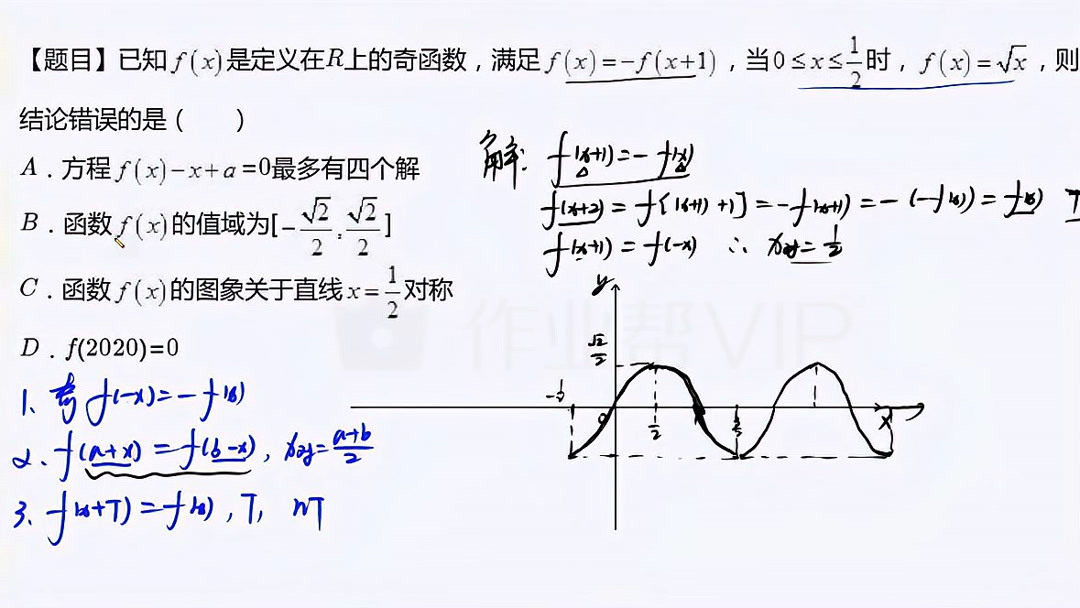 【题目】已知f(x)是定义在R上的奇函数，满足f(x)=-f(x+1)，当0≤x≤1/2时，f(x)=√x，则
结论错误的是（　　）
A．方程f(x)-x+a=0最多有四个解
B．函数f(x)的值域为[-√2/2,√2/2]
C．函数f(x)的图象关于直线x=1/2对称
D．f(2020)=0
解: f(x+1)=-f(x)
f(x+2)=f[(x+1)+1]=-f(x+1)=-(-f(x))=f(x) T
f(x+1)=f(-x) ∴ x对=1/2
y
√2/2
0
1/2
x
1、奇 f(-x)=-f(x)
2、f(a+x)=f(b-x), x对=a+b/2
3、f(x+T)=f(x), T, nT
作业帮VIP